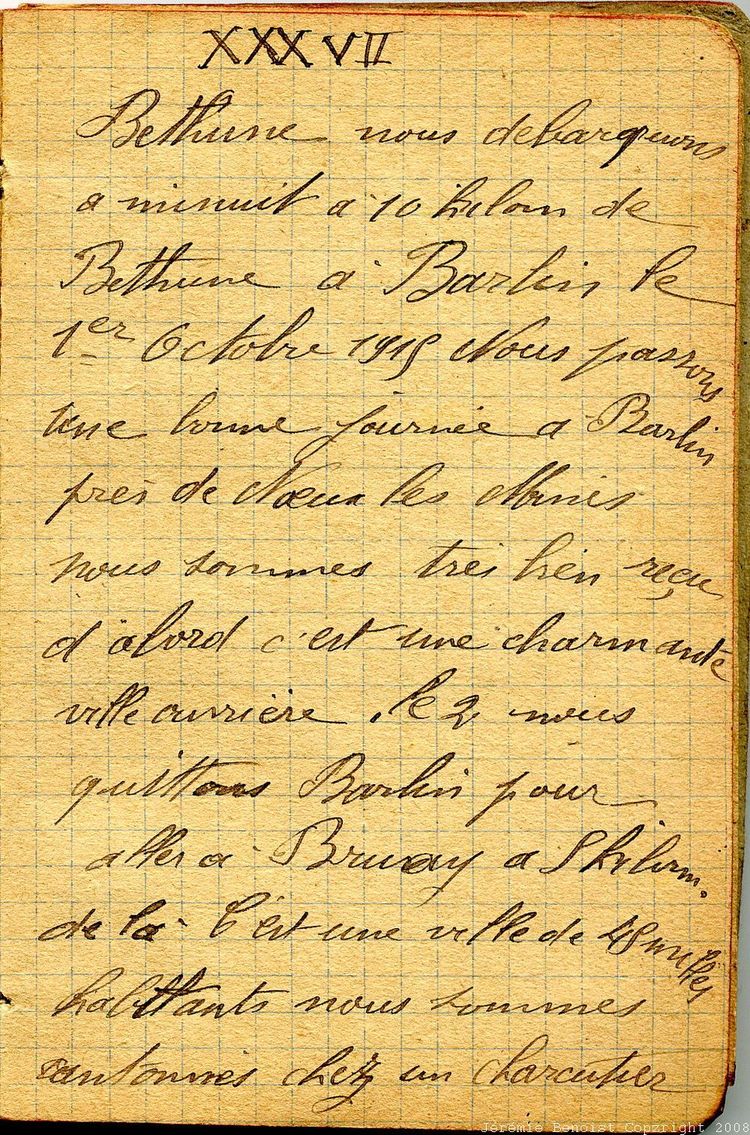 XXXVII
Bethune nous debarquons
a minuit a 10 kilom de
Bethune a Barlin le
1er Octobre 1915 Nous passons
une bonne journée a Barlin
près de Nœux les Mines
nous sommes très bien reçu
d'abord c'est une charmante
ville ouvrière. le 2 nous
quittons Barlin pour
aller a Bruay a 8 kilom.
de la C'est une ville de milles
habittants nous sommes
cantonnés chez un charcutier
Jérémie Benoist Copyright 2008